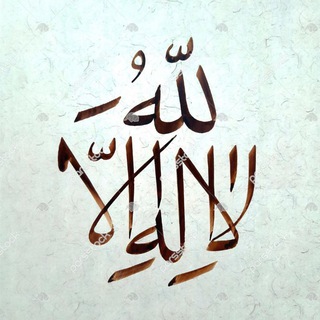 لا اِلٰهَ اِلّا
اللّهُ